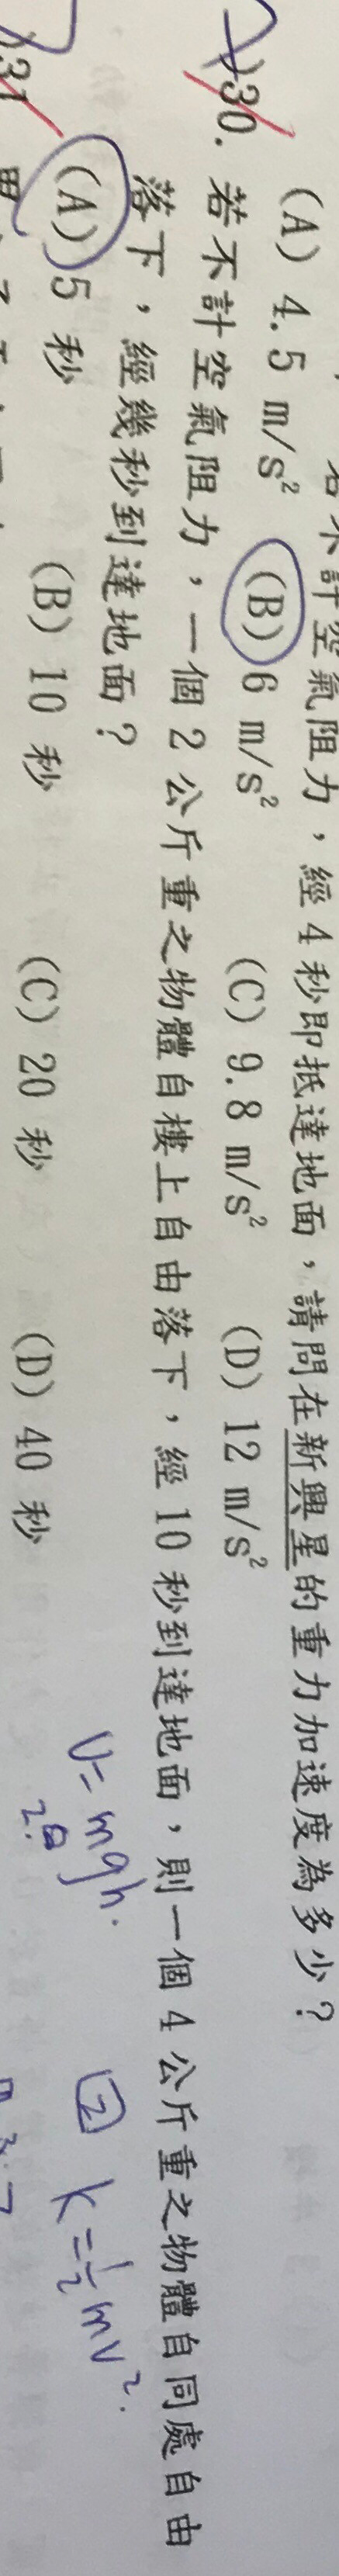 若不計空氣阻力，經 4 秒即抵達地面，請問在新興星的重力加速度為多少？
(A) 4.5 m/s² (B) 6 m/s² (C) 9.8 m/s² (D) 12 m/s²
)30. 若不計空氣阻力，一個 2 公斤重之物體自樓上自由落下，經 10 秒到達地面，則一個 4 公斤重之物體自同處自由
落下，經幾秒到達地面？
(A) 5 秒 (B) 10 秒 (C) 20 秒 (D) 40 秒
U = mgh.
② K = ½ mv².
)31